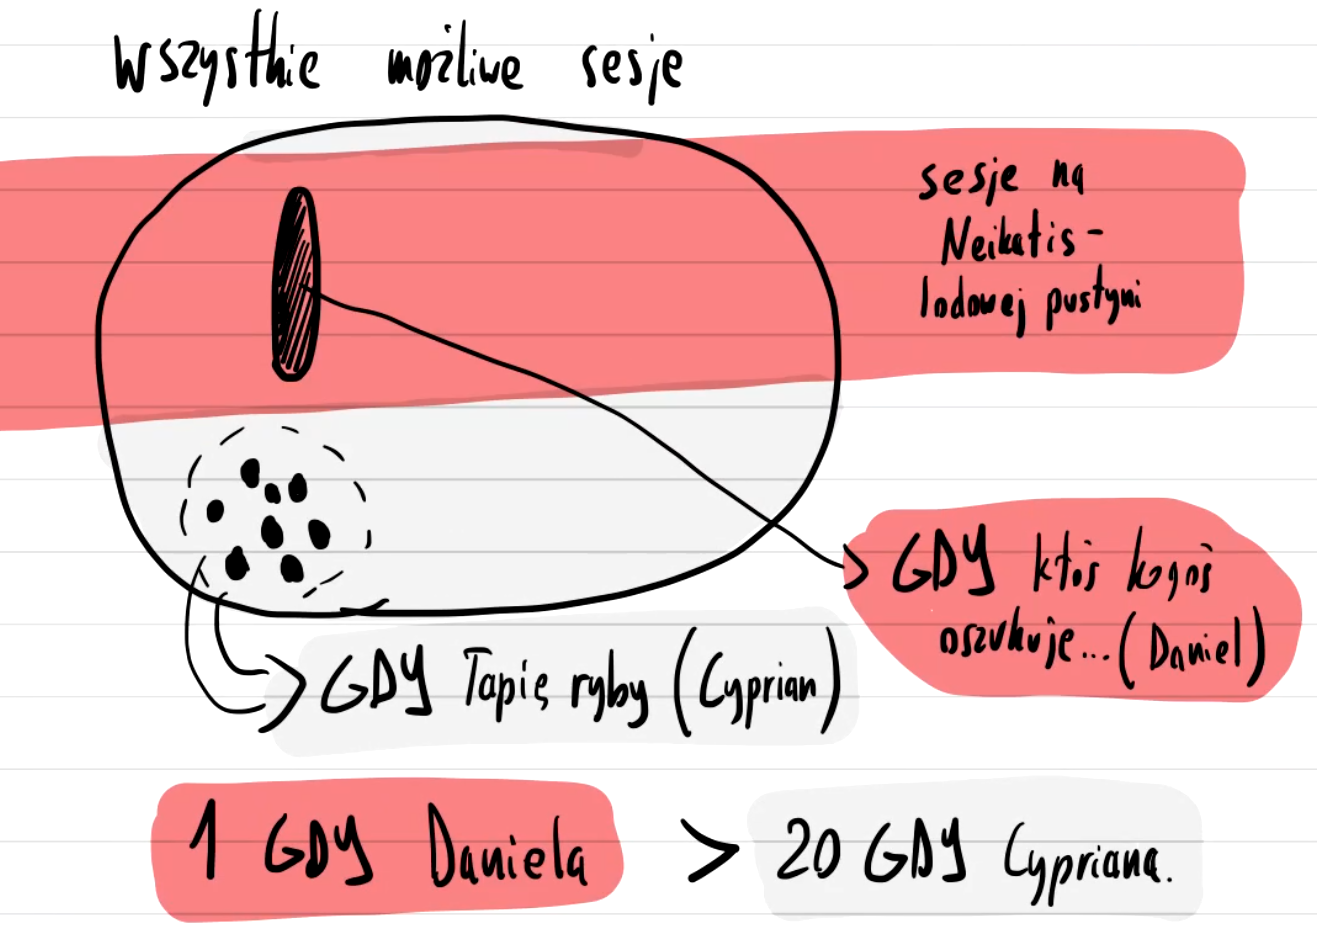 Wszystkie możliwe sesje
sesje na
Neikatis -
lodowej pustyni
GDY ktoś kogoś
oszukuje... (Daniel)
GDY Łapię ryby (Cyprian)
1 GDY Daniela > 20 GDY Cypriana.